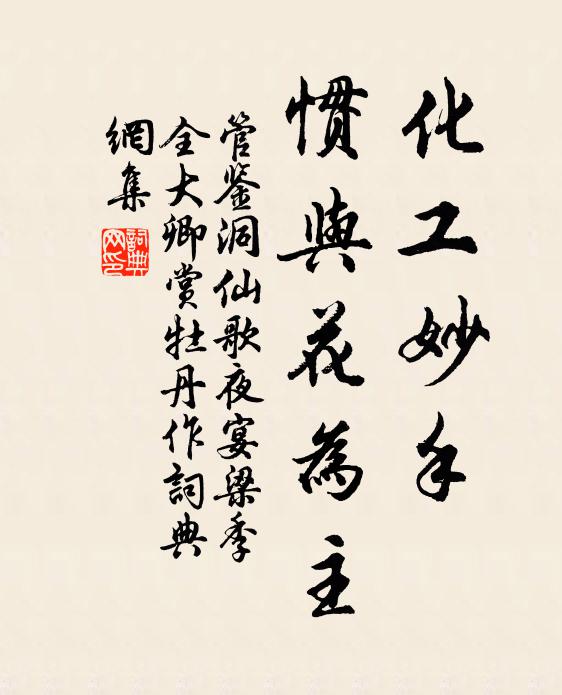 化工妙手
慣與花為主
管鉴洞仙歌夜宴梁季
全大卿赏牡丹作詞典
網集
詞典
网印